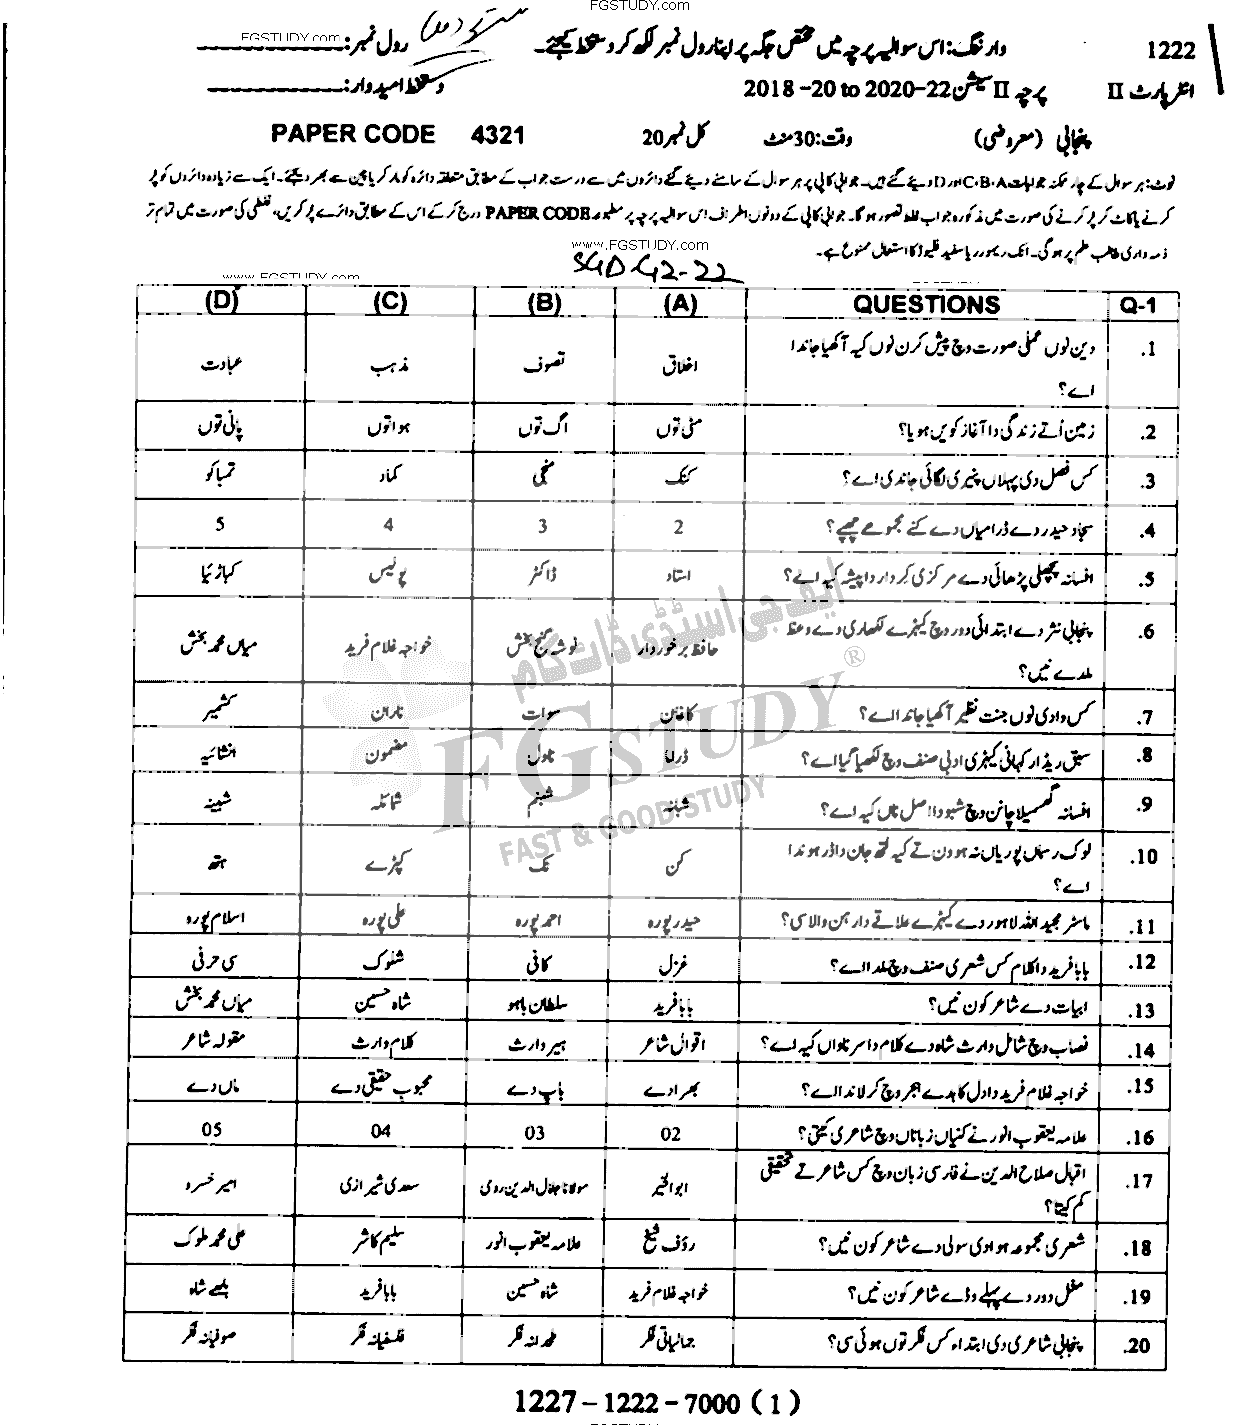 FGSTUDY.com
1222 وارننگ: اس سوالیہ پرچہ میں مختص جگہ پر اپنا رول نمبر لکھ کر دستخط کیجئے۔ رول نمبر: FGSTUDY.com
انٹر پارٹ II پرچہ II سیشن 2018-20 to 2020-22 دستخط امیدوار:
پنجابی (معروضی) وقت: 30 منٹ کل نمبر 20 PAPER CODE 4321
نوٹ: ہر سوال کے چار ممکنہ جوابات C، B، A اور D دیئے گئے ہیں۔ جوابی کاپی پر ہر سوال کے سامنے دیئے گئے دائروں میں سے درست جواب کے مطابق متعلقہ دائرہ کو مارکر یا پین سے بھر دیجئے۔ ایک سے زیادہ دائروں کو پُر
کرنے یا کاٹ کر پُر کرنے کی صورت میں مذکورہ جواب غلط تصور ہوگا۔ جوابی کاپی کے دونوں اطراف اس سوالیہ پرچہ پر مطبوعہ PAPER CODE درج کر کے اس کے مطابق دائرے پُر کریں، غلطی کی صورت میں تمام تر
www.FGSTUDY.com
ذمہ داری طالب علم پر ہوگی۔ انک ریموور یا سفید فلیوڈ کا استعمال ممنوع ہے۔
SGD-G2-22
www.FGSTUDY.com
Q-1 QUESTIONS (A) (B) (C) (D)
1. دین نوں عملی صورت وچ پیش کرن نوں کیہ آکھیا جاندا اخلاق تصوف مذہب عبادت
اے؟
2. زمین اُتے زندگی دا آغاز کویں ہویا؟ مٹی توں اگ توں ہوا توں پانی توں
3. کس فصل دی پہلاں پنیری لگائی جاندی اے؟ کنک منجی کماد تمباکو
4. سجاد حیدر دے ڈرامیاں دے کنے مجموعے چھپے؟ 2 3 4 5
5. افسانہ پچھلی پڑھائی دے مرکزی کردار دا پیشہ کیہ اے؟ استاد ڈاکٹر پولیس کباڑیا
6. پنجابی نثر دے ابتدائی دور وچ کیہڑے لکھاری دے وعظ حافظ برخوردار نوشہ گنج بخش خواجہ غلام فرید میاں محمد بخش
ملدے نیں؟
7. کس وادی نوں جنت نظیر آکھیا جاندا اے؟ کاغان سوات ناران کشمیر
8. سبق ریڈار کہانی کیہڑی ادبی صنف وچ لکھیا گیا اے؟ ڈراما ناول مضمون انشائیہ
9. افسانہ گھسمیلا چانن وچ شبو دا اصل ناں کیہ اے؟ شبانہ شبنم شمائلہ شبینہ
10. لوک رسماں پوریاں نہ ہوون تے کیہ لتھ جان دا ڈر ہوندا کن نک کپڑے ہتھ
اے؟
11. ماسٹر مجید اللہ لاہور دے کیہڑے علاقے دا رہن والا سی؟ حیدر پورہ احمد پورہ علی پورہ اسلام پورہ
12. بابا فرید دا کلام کس شعری صنف وچ ملدا اے؟ غزل کافی شلوک سی حرفی
13. ابیات دے شاعر کون نیں؟ بابا فرید سلطان باہو شاہ حسین میاں محمد بخش
14. نصاب وچ شامل وارث شاہ دے کلام دا سرناواں کیہ اے؟ اقوال شاعر ہیر وارث کلام وارث مقولہ شاعر
15. خواجہ غلام فرید دا دل کاہدے ہجر وچ کرلاندا اے؟ بھرا دے باپ دے محبوب حقیقی دے ماں دے
16. علامہ یعقوب انور نے کنیاں زباناں وچ شاعری کیتی؟ 02 03 04 05
17. اقبال صلاح الدین نے فارسی زبان وچ کس شاعر تے تحقیقی ابوالخیر مولانا جلال الدین رومی سعدی شیرازی امیر خسرو
کم کیتا؟
18. شعری مجموعہ ہوا دی سولی دے شاعر کون نیں؟ رؤف شیخ علامہ یعقوب انور سلیم کاشر علی محمد ملوک
19. مغل دور دے پہلے وڈے شاعر کون نیں؟ خواجہ غلام فرید شاہ حسین بابا فرید بلھے شاہ
20. پنجابی شاعری دی ابتداء کس فکر توں ہوئی سی؟ جمالیاتی فکر ملحدانہ فکر فلسفیانہ فکر صوفیانہ فکر
ایف جی اسٹڈی ڈاٹ کام
FGSTUDY ®
FAST & GOOD STUDY
1227-1222-7000 (1)